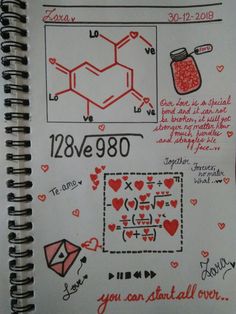 Zara
30-12-2018
Lo
ve
Lo
Lo
ve
Our Love is a Special
bond and it can not
be broken, it will get
stronger no matter how
much, hurdles
and struggles we
face...
128√e980
Together
Forever,
no mater
What...
Te amo
Love
Zara
you can start all over..